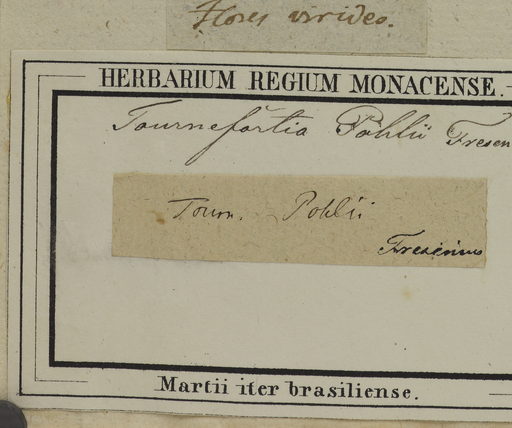 Flores virides.
HERBARIUM REGIUM MONACENSE.
Tournefortia Pohlii Fresen
Tourn. Pohlii
Fresenius
Martii iter brasiliense.